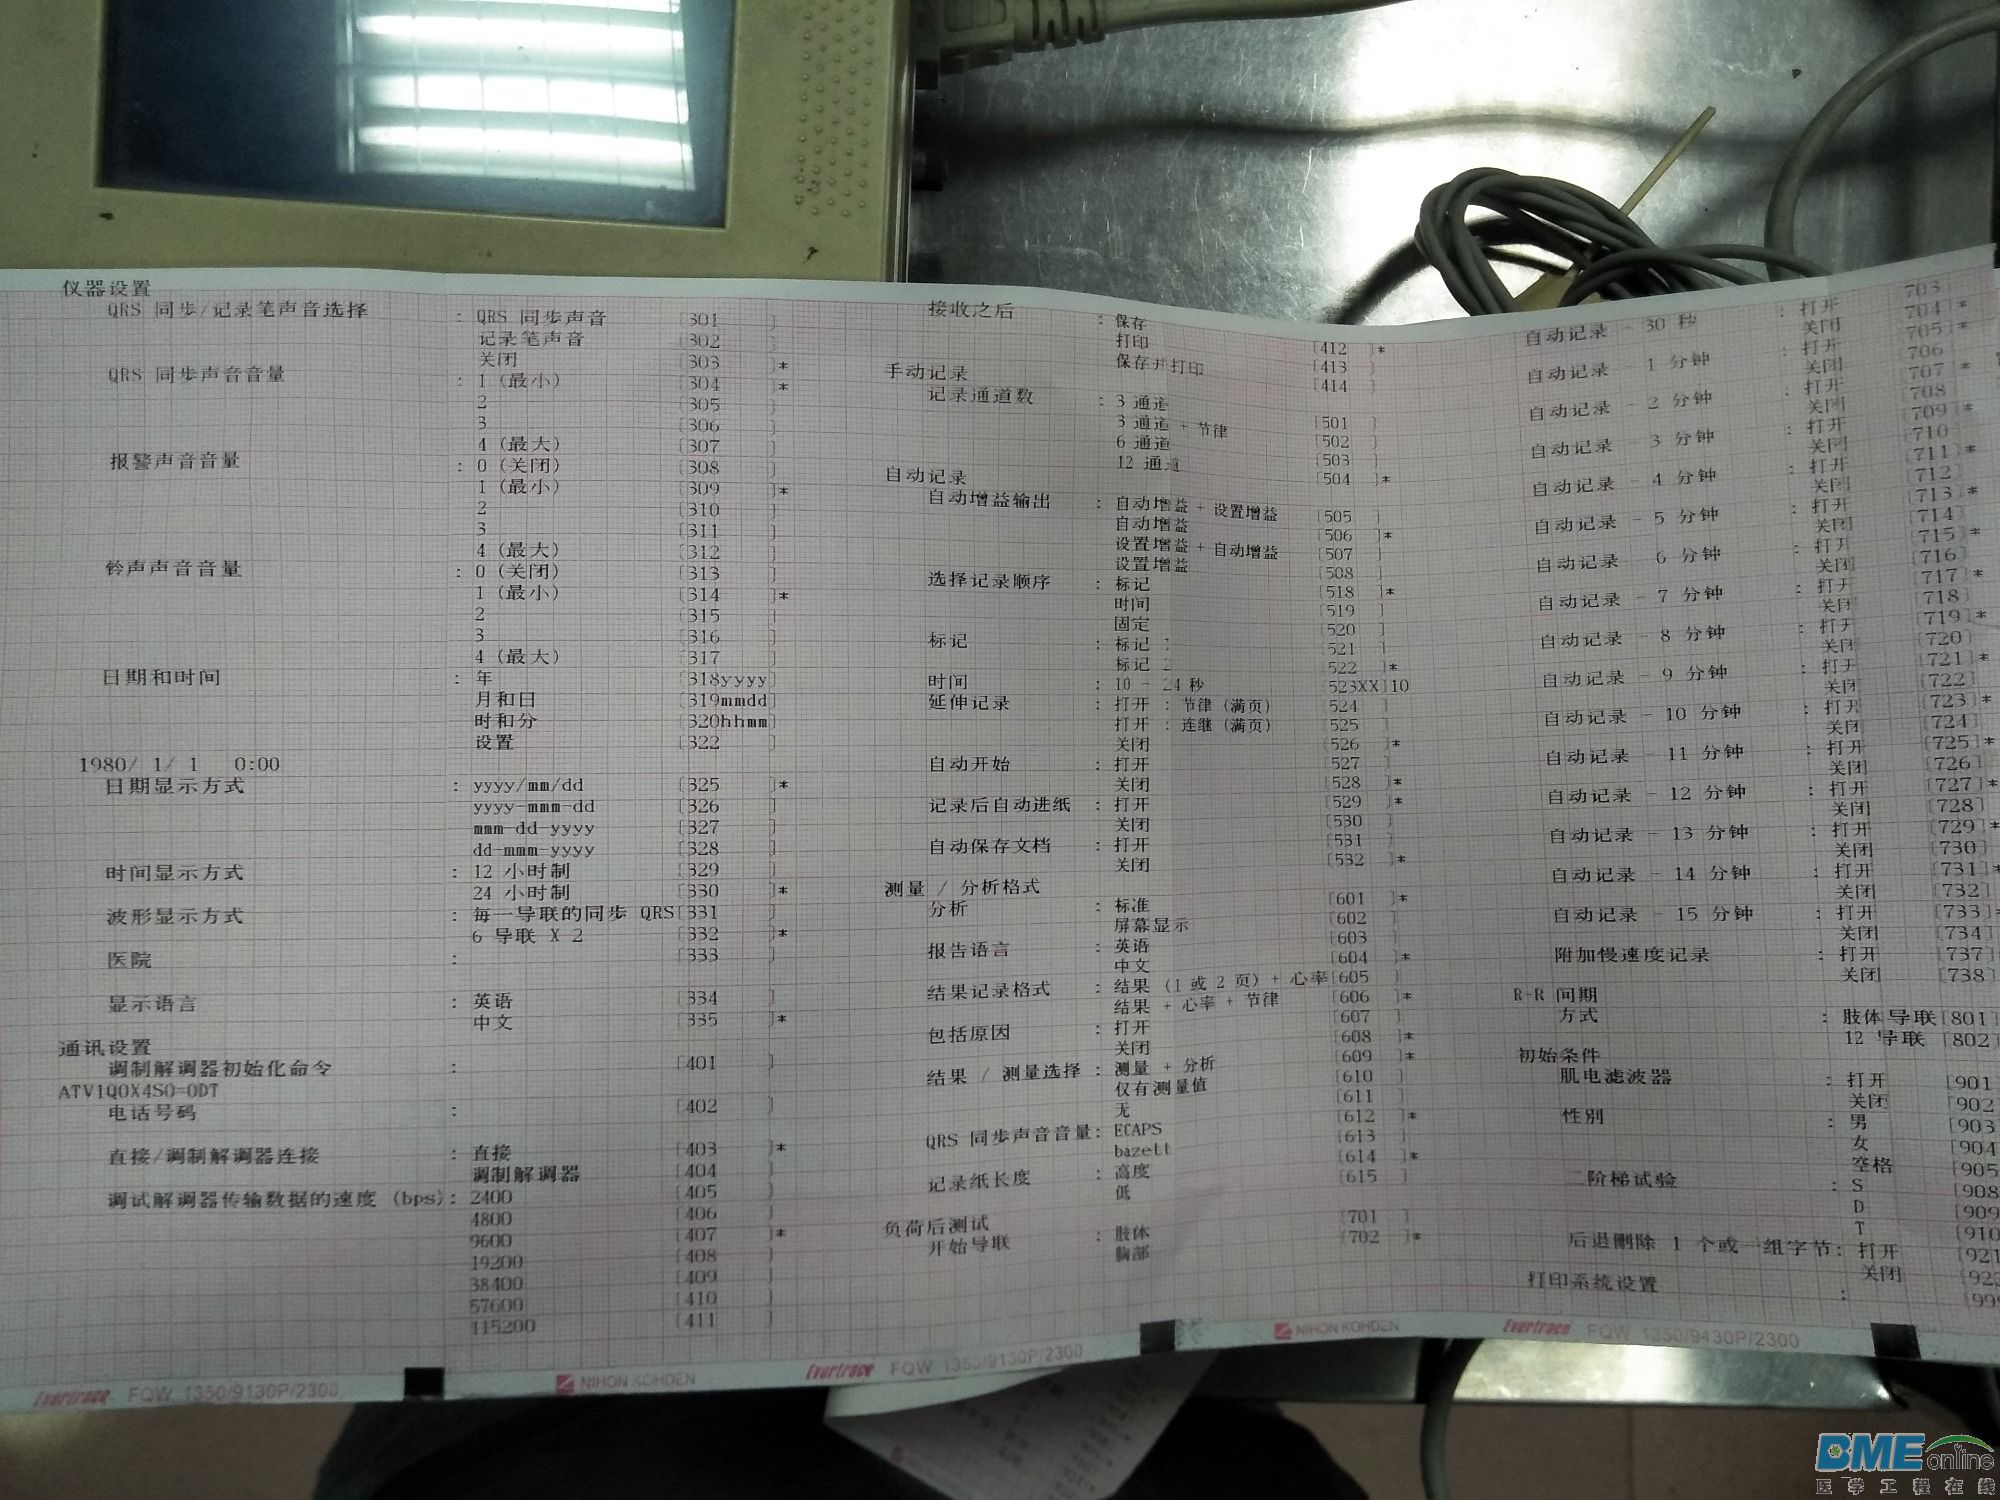 仪器设置
QRS 同步/记录笔声音选择 : QRS 同步声音 [301 ]
记录笔声音 [302 ]
关闭 [303 ]*
QRS 同步声音音量 : 1 (最小) [304 ]*
2 [305 ]
3 [306 ]
4 (最大) [307 ]
报警声音音量 : 0 (关闭) [308 ]
1 (最小) [309 ]*
2 [310 ]
3 [311 ]
4 (最大) [312 ]
铃声声音音量 : 0 (关闭) [313 ]
1 (最小) [314 ]*
2 [315 ]
3 [316 ]
4 (最大) [317 ]
日期和时间 : 年 [318yyyy]
月和日 [319mmdd]
时和分 [320hhmm]
设置 [322 ]
1980/ 1/ 1 0:00
日期显示方式 : yyyy/mm/dd [325 ]*
yyyy-mmm-dd [326 ]
mmm-dd-yyyy [327 ]
dd-mmm-yyyy [328 ]
时间显示方式 : 12 小时制 [329 ]
24 小时制 [330 ]*
波形显示方式 : 每一导联的同步 QRS[331 ]
6 导联 X 2 [332 ]*
医院 : [333 ]
显示语言 : 英语 [334 ]
中文 [335 ]*
通讯设置
调制解调器初始化命令 : [401 ]
ATV1Q0X4S0=0DT
电话号码 : [402 ]
直接/调制解调器连接 : 直接 [403 ]*
调制解调器 [404 ]
调试解调器传输数据的速度 (bps): 2400 [405 ]
4800 [406 ]
9600 [407 ]*
19200 [408 ]
38400 [409 ]
57600 [410 ]
115200 [411 ]
接收之后 : 保存 [412 ]*
打印 [413 ]
保存并打印 [414 ]
手动记录
记录通道数 : 3 通道 [501 ]
3 通道 + 节律 [502 ]
6 通道 [503 ]
12 通道 [504 ]*
自动记录
自动增益输出 : 自动增益 + 设置增益 [505 ]
自动增益 [506 ]*
设置增益 + 自动增益 [507 ]
设置增益 [508 ]
选择记录顺序 : 标记 [518 ]*
时间 [519 ]
固定 [520 ]
标记 : 标记 1 [521 ]
标记 2 [522 ]*
时间 : 10 - 24 秒 [523XX]10
延伸记录 : 打开 : 节律 (满页) [524 ]
打开 : 连继 (满页) [525 ]
关闭 [526 ]*
自动开始 : 打开 [527 ]
关闭 [528 ]*
记录后自动进纸 : 打开 [529 ]*
关闭 [530 ]
自动保存文档 : 打开 [531 ]
关闭 [532 ]*
测量 / 分析格式
分析 : 标准 [601 ]*
屏幕显示 [602 ]
报告语言 : 英语 [603 ]
中文 [604 ]*
结果记录格式 : 结果 (1 或 2 页) + 心率[605 ]
结果 + 心率 + 节律 [606 ]*
包括原因 : 打开 [607 ]
关闭 [608 ]*
结果 / 测量选择 : 测量 + 分析 [609 ]*
仅有测量值 [610 ]
无 [611 ]
QRS 同步声音音量: ECAPS [612 ]*
bazett [613 ]
记录纸长度 : 高度 [614 ]*
低 [615 ]
负荷后测试
开始导联 : 肢体 [701 ]
胸部 [702 ]*
自动记录 - 30 秒 : 打开 [703
关闭 [704]*
自动记录 - 1 分钟 : 打开 [705]*
关闭 [706
自动记录 - 2 分钟 : 打开 [707]*
关闭 [708
自动记录 - 3 分钟 : 打开 [709]*
关闭 [710
自动记录 - 4 分钟 : 打开 [711]*
关闭 [712
自动记录 - 5 分钟 : 打开 [713]*
关闭 [714
自动记录 - 6 分钟 : 打开 [715]*
关闭 [716]
自动记录 - 7 分钟 : 打开 [717]*
关闭 [718
自动记录 - 8 分钟 : 打开 [719]*
关闭 [720]
自动记录 - 9 分钟 : 打开 [721]*
关闭 [722
自动记录 - 10 分钟 : 打开 [723]*
关闭 [724]
自动记录 - 11 分钟 : 打开 [725]*
关闭 [726]
自动记录 - 12 分钟 : 打开 [727]*
关闭 [728]
自动记录 - 13 分钟 : 打开 [729]*
关闭 [730]
自动记录 - 14 分钟 : 打开 [731]*
关闭 [732]
自动记录 - 15 分钟 : 打开 [733]*
关闭 [734]
附加慢速度记录 : 打开 [737]
关闭 [738]
R-R 间期
方式 : 肢体导联[801]
12 导联 [802]
初始条件
肌电滤波器 : 打开 [901
关闭 [902
性别 : 男 [903
女 [904
空格 [905
二阶梯试验 : S [908
D [909
T [910
后退删除 1 个或一组字节: 打开 [921
关闭 [922
打印系统设置 : [999
Evertrace FQW 1350/9130P/2300
NIHON KOHDEN
Evertrace FQW 1350/9130P/2300
NIHON KOHDEN
Evertrace FQW 1350/9130P/2300
BME online
医学工程在线